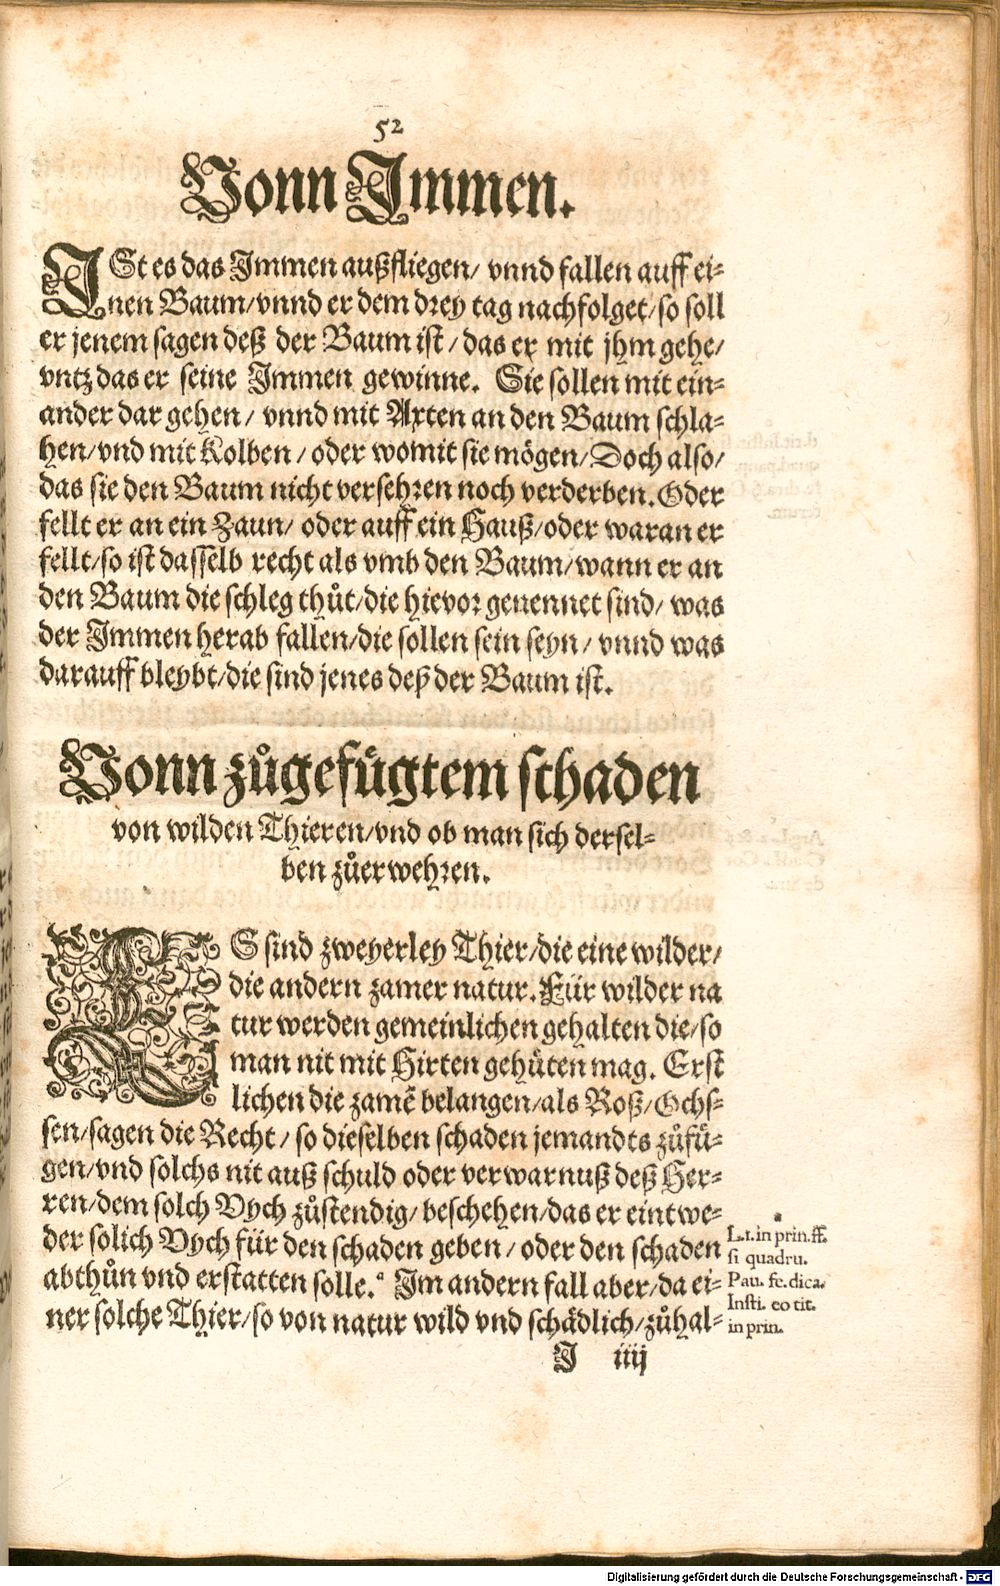 52
Vonn Immen.
ISt es das Immen außfliegen/ vnnd fallen auff ei-
nen Baum/vnnd er dem drey tag nachfolget/so soll
er jenem sagen deß der Baum ist/ das er mit jhm gehe/
vntz das er seine Immen gewinne. Sie sollen mit ein-
ander dar gehen/ vnnd mit Axten an den Baum schla-
hen/vnd mit Kolben/ oder womit sie mögen/Doch also/
das sie den Baum nicht versehren noch verderben. Oder
fellt er an ein Zaun/ oder auff ein Hauß/oder waran er
fellt/so ist dasselb recht als vmb den Baum/wann er an
den Baum die schleg thůt/die hievor genennet sind/ was
der Immen herab fallen/die sollen sein seyn/ vnnd was
darauff bleybt/die sind jenes deß der Baum ist.
Vonn zůgefügtem schaden
von wilden Thieren/vnd ob man sich dersel-
ben zůerwehren.
ES sind zweyerley Thier/die eine wilder/
die andern zamer natur. Für wilder na
tur werden gemeinlichen gehalten die/so
man nit mit Hirten gehüten mag. Erst
lichen die zamẽ belangen/als Roß/Ochs-
sen/sagen die Recht/ so dieselben schaden jemandts zůfü-
gen/vnd solchs nit auß schuld oder verwarnuß deß Her-
ren/dem solch Vych zůstendig/ beschehen/das er eintwe-
der solich Vych für den schaden geben/ oder den schaden
abthůn vnd erstatten solle.ᵃ Im andern fall aber/da ei-
ner solche Thier/so von natur wild vnd schädlich/zůhal-
a
L.1.in prin.ff.
si quadru.
Pau. fe. dica.
Insti. eo tit.
in prin.
I iiij
Digitalisierung gefördert durch die Deutsche Forschungsgemeinschaft - DFG